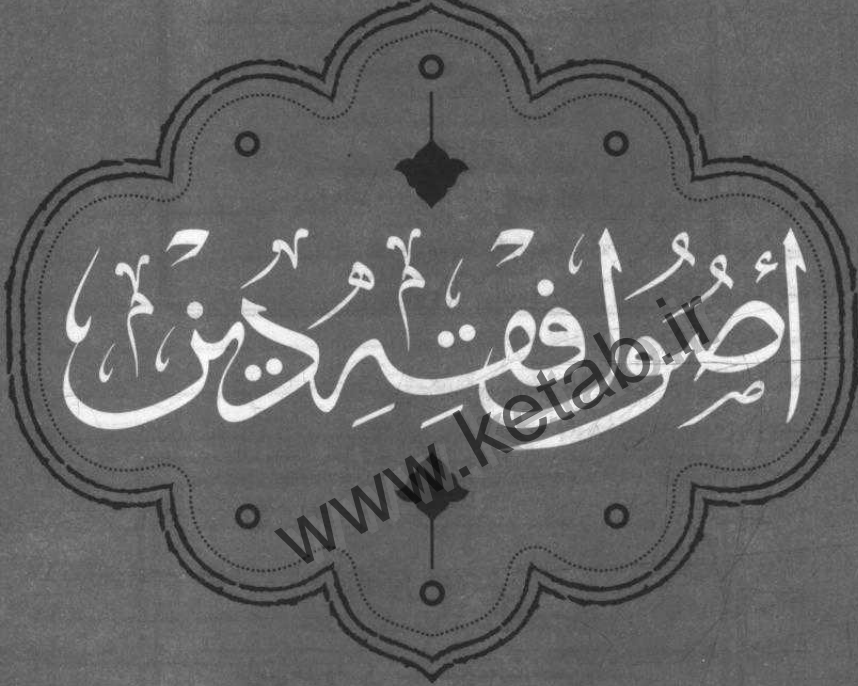 أصُول فقهِ دین
www.ketab.ir